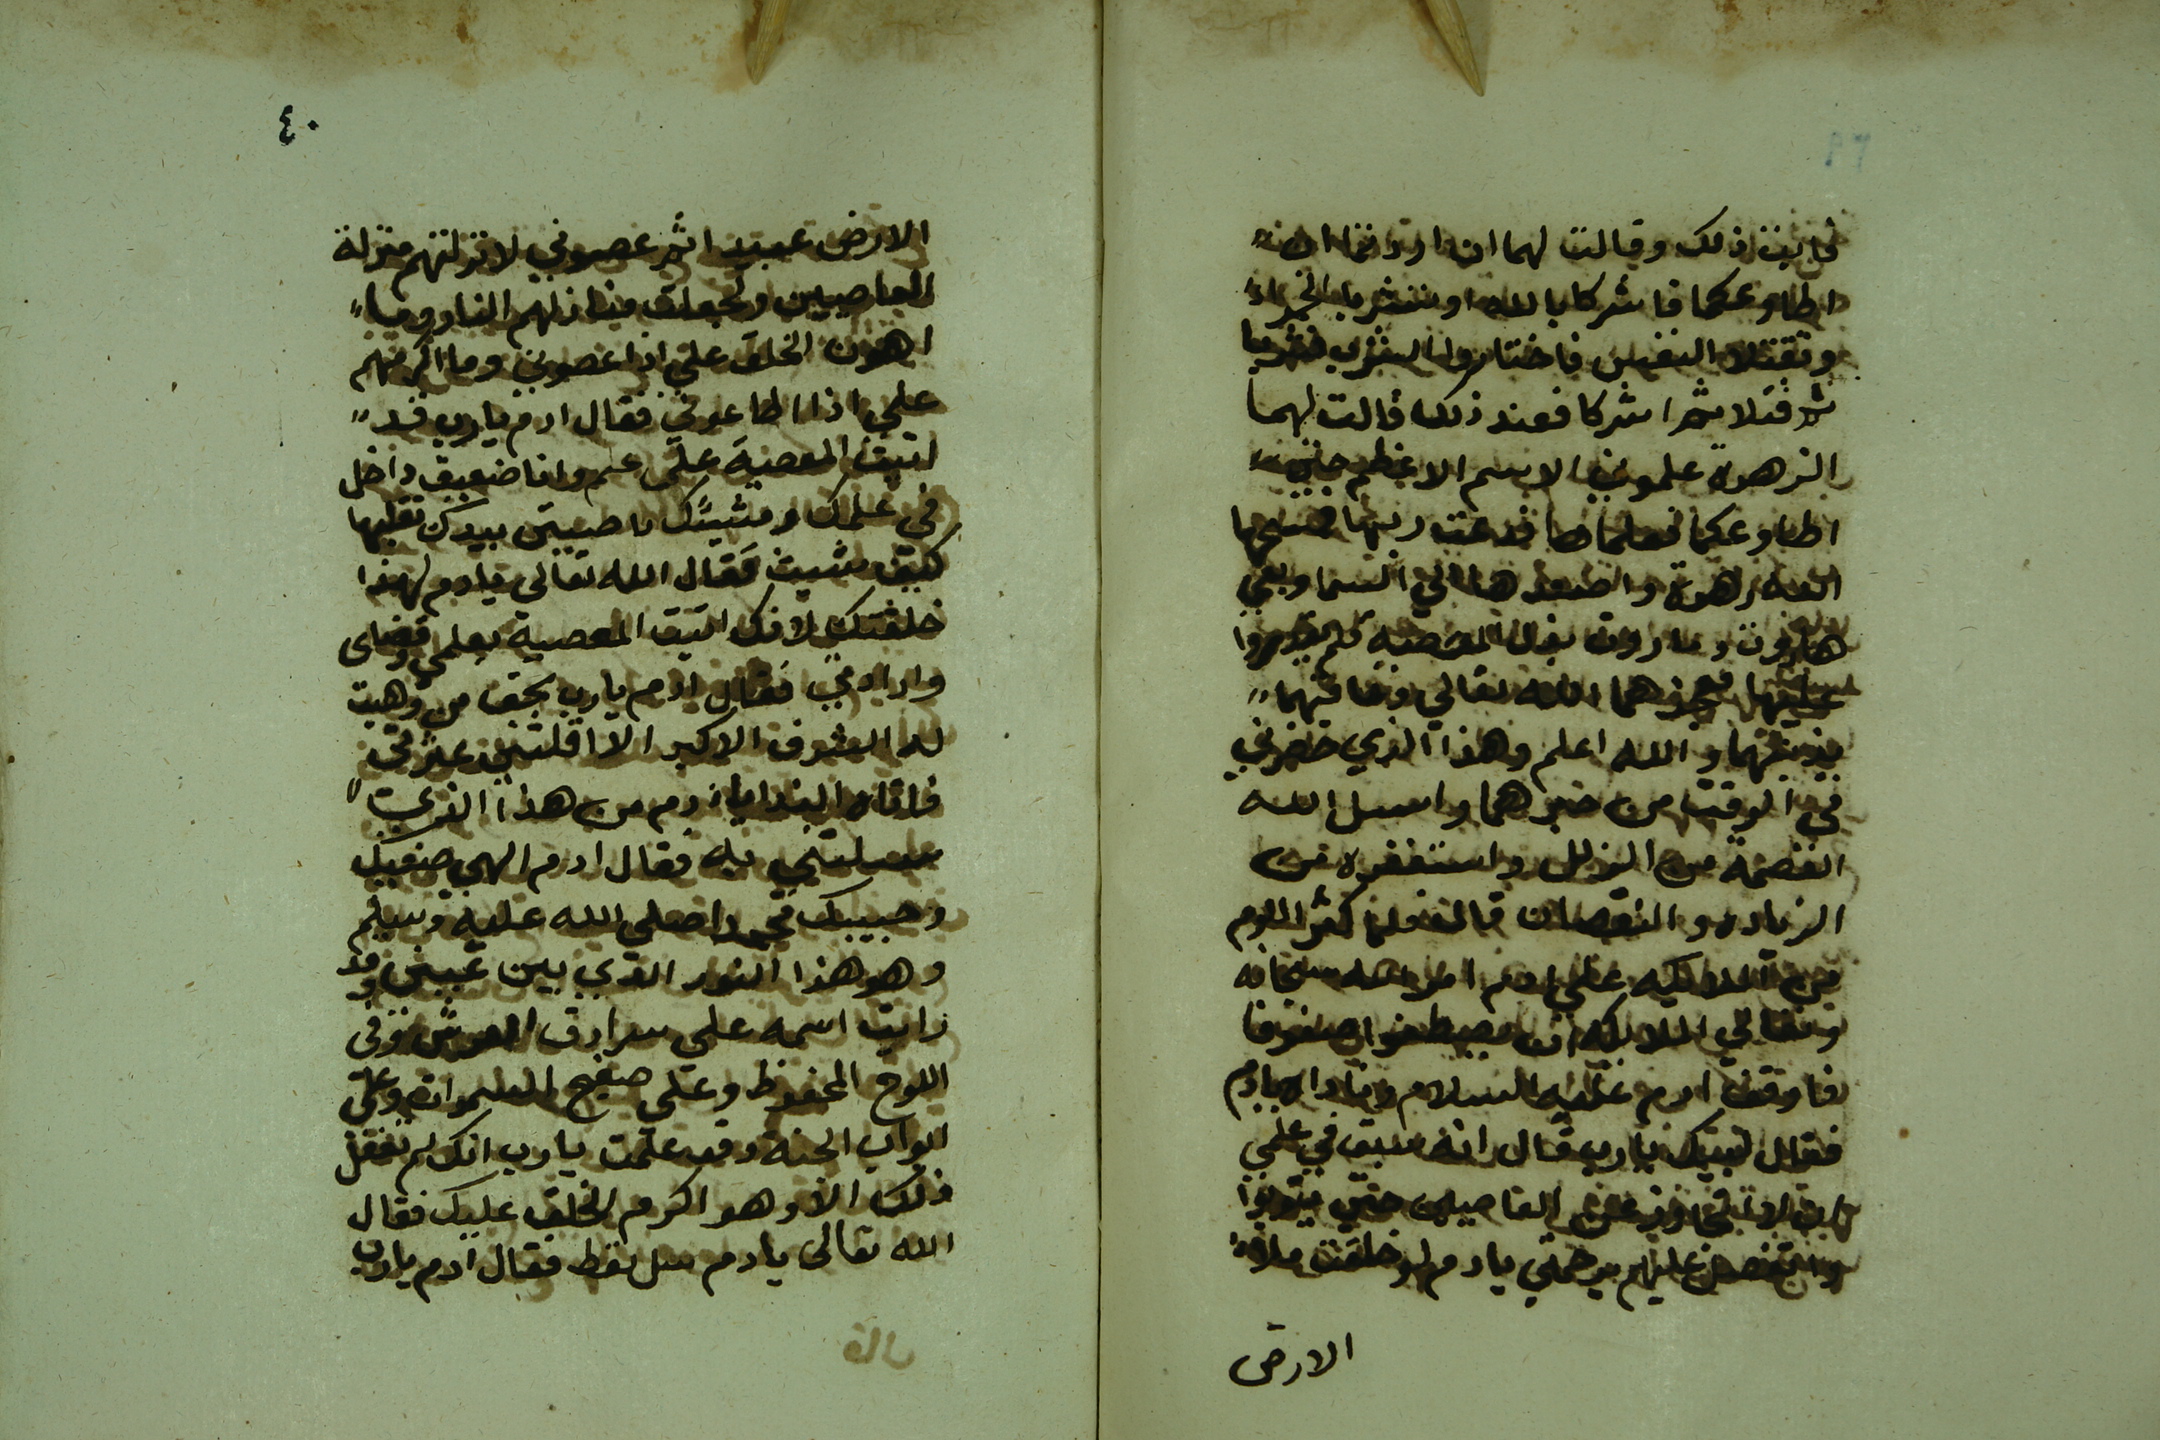 فابت ذلك وقالت لهما ان اردتما ان
اطاوعكما فاشركا بالله او تشربا الخمراء
وتقتلا النفس فاختاروا الشرب فشربا
ثم قتلا ثم اشركا فعند ذلك قالت لهما
الزهرة علموني الاسم الاعظم حتي
اطاوعكما فعلماها فدعت ربها فمسخها
الله زهرة واصعدها الي السما وبقي
هاروت وماروت بفعل المعصية
عليها الله تعالي وعاقبهما
بذنبهما والله اعلم وهذا الذي حضرني
في الوقت من خبرهما واسل الله
العصمة من الزلل واستغفره من
الزياده والنقصان قال فلما كثر اللوم
من الملايكه علي ادم امر الله سبحانه
وتعالي الملايكه ان يصطفوا صفوفا
فاوقف ادم عليه السلام وناداه يادم
فقال لبيك يارب قال انه سبق في علمي
اتجاوز عن العاصيين حتي يتوبوا
واتفضل عليهم برحمتي يادم لو خلقت ملاة
الارض
٤٠
الارض عبيد اثم عصوني لانزلتهم منزلة
العاصيين ولجعلت منازلهم النار وما
اهون الخلق علي اذا عصوني وما اكرمهم
علي اذا اطاعوني فقال ادم يارب قد
اتيت المعصية على علم وانا ضعيف داخل
في علمك ومشيتك ناصيتى بيدك تقلبها
كيف شيت فقال الله تعالى يادم لهذا
خلقتك لانك اتيت المعصية بعلمي وقضاى
وارادتي فقال ادم يارب بحق من وهبت
له الشرف الاكبر الا اقلتني عثرتى
فاتاه الندا يادم من هذا الذي
سالتني به فقال ادم الهي صفيك
وحبيبك محمدا صلي الله عليه وسلم
وهو هذا النور الذي بين عيني وقد
رايت اسمه على سرادق العرش وفى
اللوح المحفوظ وعلي صفيح السموات وعلى
ابواب الجنة وقد علمت يارب انك لم تفعل
ذلك الا وهو اكرم الخلق عليك فقال
الله تعالى يادم سل تعط فقال ادم يارب